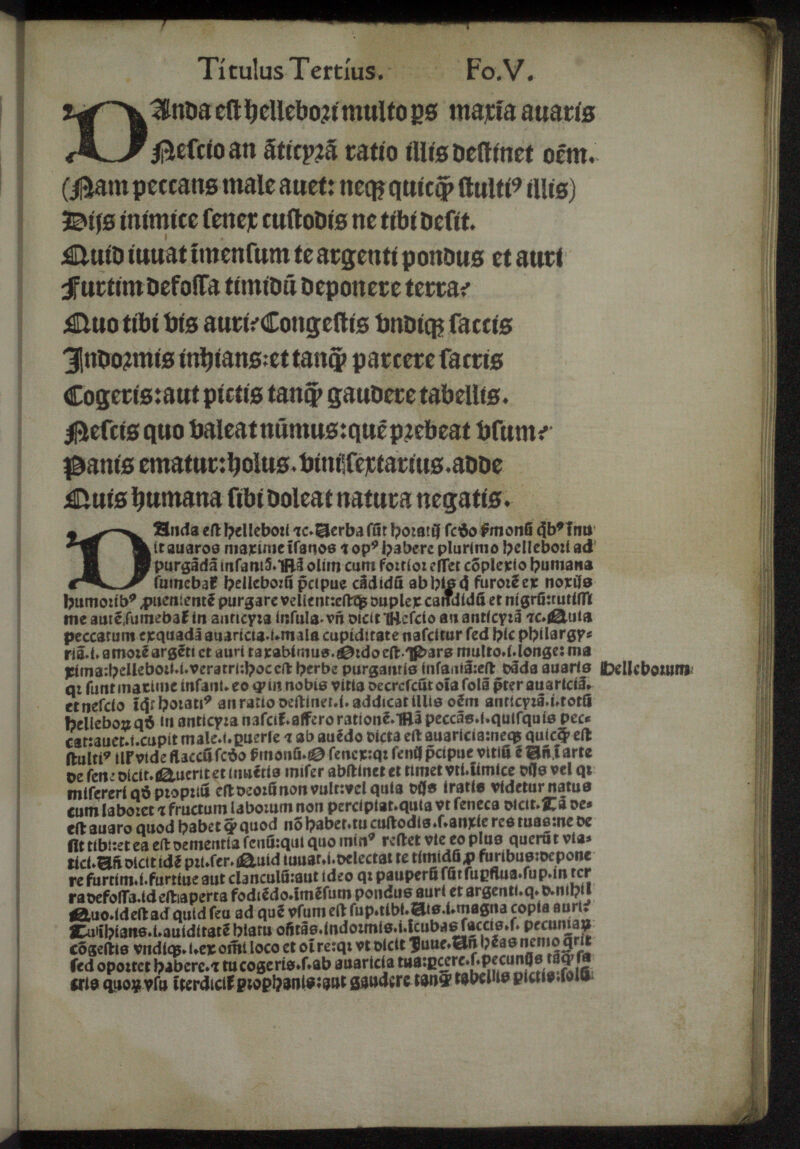 Titulus Tertius. Fo.V.
DAnda est hellebori multo ps maxĩa auaris
Nescio an ãticyrã ratio illis destinet oẽm.
(Nam peccans male auet: neqꝫ quicꝙ̃ stultiꝰ illis)
Dijs inimice senex custodis ne tibi desit.
Quid iuuat ĩmensum te argenti pondus et auri
Furtim defossa timidũ deponere terra?
Quo tibi vis auri? Congestis vndiqꝫ saccis
Indormis inhians: et tanꝙ̃ parcere sacris
Cogeris: aut pictis tanꝙ̃ gaudere tabellis.
Nescis quo valeat nũmus: quẽ prebeat vsum?
Panis ematur: holus. vini sextarius. adde
Quis humana sibi doleat natura negatis.
DAnda est hellebori ⁊c. Verba sũt horatij scđo s̃monũ qͥbꝰ ĩnu
it auaros maxime ĩsanos ⁊ opꝰ habere plurimo hellebori ad
purgãdã insaniã. Nã olim cum fortior esset cõplexio humana
sumebat̃ helleborũ p̃cipue cãdidũ ab his q̃ furorẽ ex noxijs
humoribꝰ ꝓuenientẽ purgare velient: estqꝫ duplex candidũ et nigrũ: tutissi
me autẽ sumebat̃ in anticyra insula. vñ dicit Nescio an anticyrã ⁊c. Quia
peccatum ex quadã auaricia. i. mala cupiditate nascitur sed hic philargy⸗
riã. i. amorẽ argẽti et auri taxabimus. Ordo est. Pars multo. i. longe: ma
xima: hellebori. i. veratri: hoc est herbe purgantis insaniã: est dãda auaris Helleborum
qꝛ sunt maxime insani. eo ꝙ in nobis vitia decrescũt oĩa solã p̃ter auariciã.
et nescio ĩq̃t horatiꝰ an ratio destinet. i. addicat illis oẽm anticyrã. i. totũ
helleboꝝ qđ in anticyra nascit̃. affero rationẽ. Nã peccãs. i. quisquis pec⸗
cat: auet. i. cupit male. i. puerse ⁊ ab auẽdo dicta est auaricia: neqꝫ quicꝙ̃ est
stultiꝰ ill̃ vide flaccũ scđo s̃monũ. O senex: qꝛ senũ p̃cipue vitiũ ẽ Vñ ĩ arte
de sene dicit. Querit et inuẽtis miser abstinet et timet vti. ĩimice dijs vel qꝛ
misereri qđ propriũ est deorũ non vult: vel quia dijs iratis videtur natus
cum laboret ⁊ fructum laborum non percipiat. quia vt seneca dicit. Tã de⸗
est auaro quod habet ꝙ̃ quod nõ habet. tu custodis. s. anxie res tuas: ne de
sit tibi: et ea est dementia senũ: qui quo minꝰ restet vie eo plus querũt via⸗
tici. Vñ dicit idẽ pri. ser. Quid iuuat. i. delectat te timidũ ꝓ furibus: depone
re furtim. i. furtiue aut clanculũ: aut ideo qꝛ pauperũ sũt suꝑflua. sup. in ter
ra defossa. id est aperta fodiẽdo. ĩmẽsum pondus auri et argenti. q. d. nihil
Quo. id est ad quid seu ad quẽ vsum est sup. tibi. Vis. i. magna copia auri?
Tu ĩhians. i. auiditatẽ hiatu oñtãs. indormis. i. ĩcubas saccis. s. pecuniaꝝ
cõgestis vndiqꝫ. i. ex om̃i loco et oĩ re: qꝛ vt dicit Juue. Vñ hẽas nemo q̃rit
sed oportet habere. ⁊ tu cogeris. s. ab auaricia tua: ꝑcere. s. pecunijs tãꝙ̃ sa
cris quoꝝ vsu ĩterdicit̃ prophanis: aut gaudere tanꝙ̃ tabellis pictis: solũ